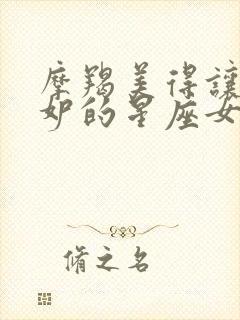 摩羯美得讓
妒的星座女
脩之名